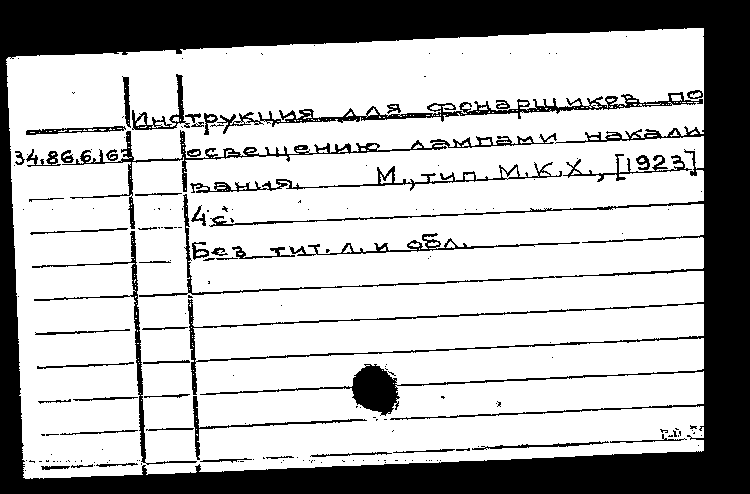 Инструкция для фонарщиков по
34.86.6.163 освещению лампами накали-
вания. М., тип. М.К.Х., [1923]
4 с.
Без тит. л. и обл.